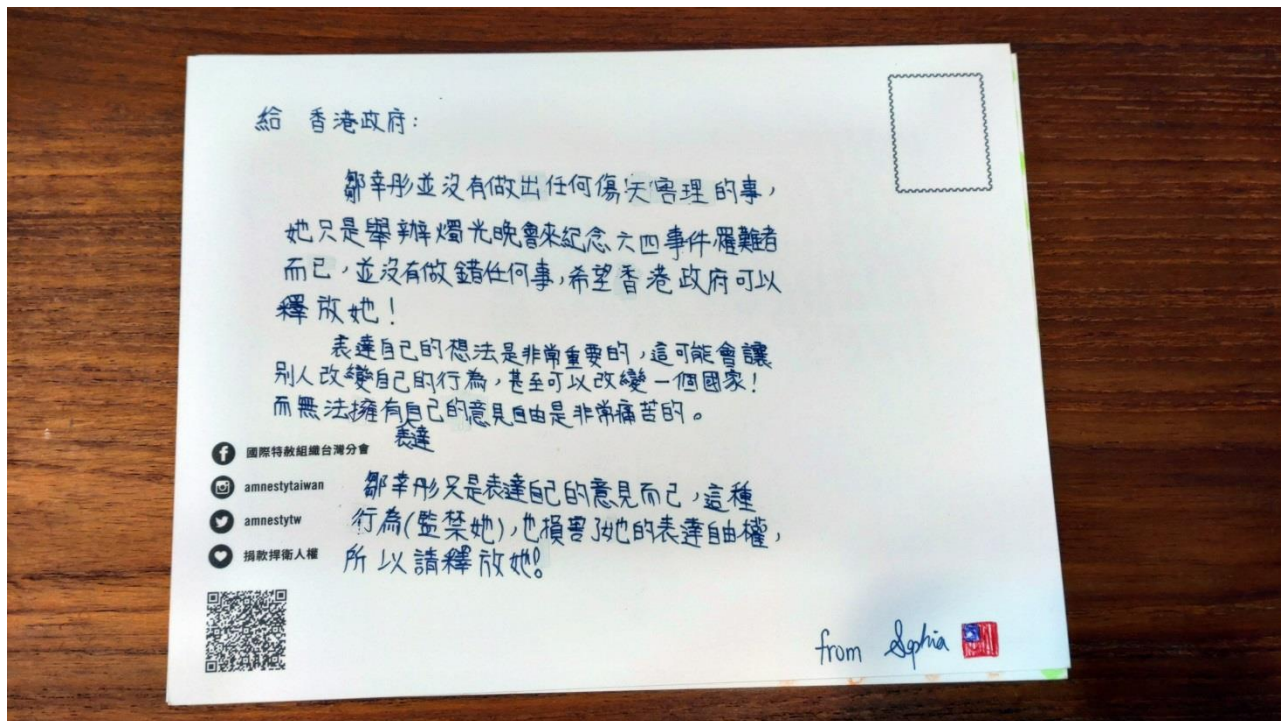 給 香港政府:
鄒幸彤並沒有做出任何傷天害理的事,
她只是舉辦燭光晚會來紀念六四事件罹難者
而已,並沒有做錯任何事,希望香港政府可以
釋放她!
表達自己的想法是非常重要的,這可能會讓
別人改變自己的行為,甚至可以改變一個國家!
而無法擁有自己的意見自由是非常痛苦的。
表達
國際特赦組織台灣分會
amnestytaiwan
amnestytw
捐款捍衛人權
鄒幸彤只是表達自己的意見而已,這種
行為(監禁她),也損害了她的表達自由權,
所以請釋放她!
from Sophia